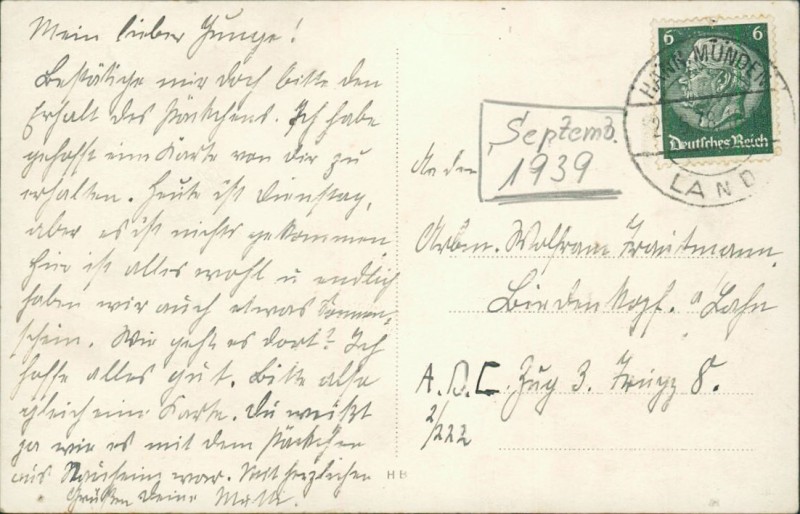 Mein lieber Junge!
Bestätige mir doch bitte den
Erhalt des Päckchens. Ich habe
gehofft eine Karte von dir zu
erhalten. Heute ist Dienstag,
aber es ist nichts gekommen.
Hier ist alles wohl u endlich
haben wir auch etwas Sonnen-
schein. Wie geht es dort? Ich
hoffe alles gut. Bitte also
gleich eine Karte. Du weißt
ja wie es mit dem Päckchen
aus Nauheim war. Mit herzlichen
Grüßen Deine
HB
6 6
Deutsches Reich
HANN. MÜNDEN
LAND
Septemb.
1939
An den
Arbm. Wolfram Trautmann
Biedenkopf. a/Lahn
A. D. L. Zug 3. Trupp 8.
2/222